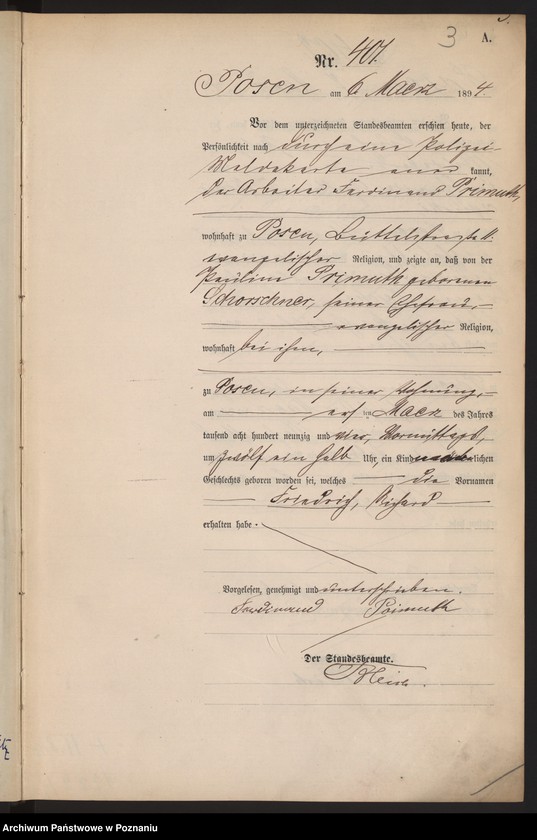 3
A.
Nr. 401.
Posen am 6. Maerz 1894.
Vor dem unterzeichneten Standesbeamten erschien heute, der
Persönlichkeit nach durch eine Polizei-
Meldekarte aner kannt,
der Arbeiter Ferdinand Primuth,
wohnhaft zu Posen, Büttelstrasse
evangelischer Religion, und zeigte an, daß von der
Pauline Primuth geborenen
Schorschner, seiner Ehefrau,
evangelischer Religion,
wohnhaft bei ihm,
zu Posen, in seiner Wohnung,
am Maerz des Jahres
tausend acht hundert neunzig und vier, Vormittags,
um zwölf ein halb Uhr, ein Kind männlichen
Geschlechts geboren worden sei, welches die Vornamen
Friedrich, Richard
erhalten habe.
Vorgelesen, genehmigt und unterschrieben.
Ferdinand Primuth
Der Standesbeamte.
Archiwum Państwowe w Poznaniu